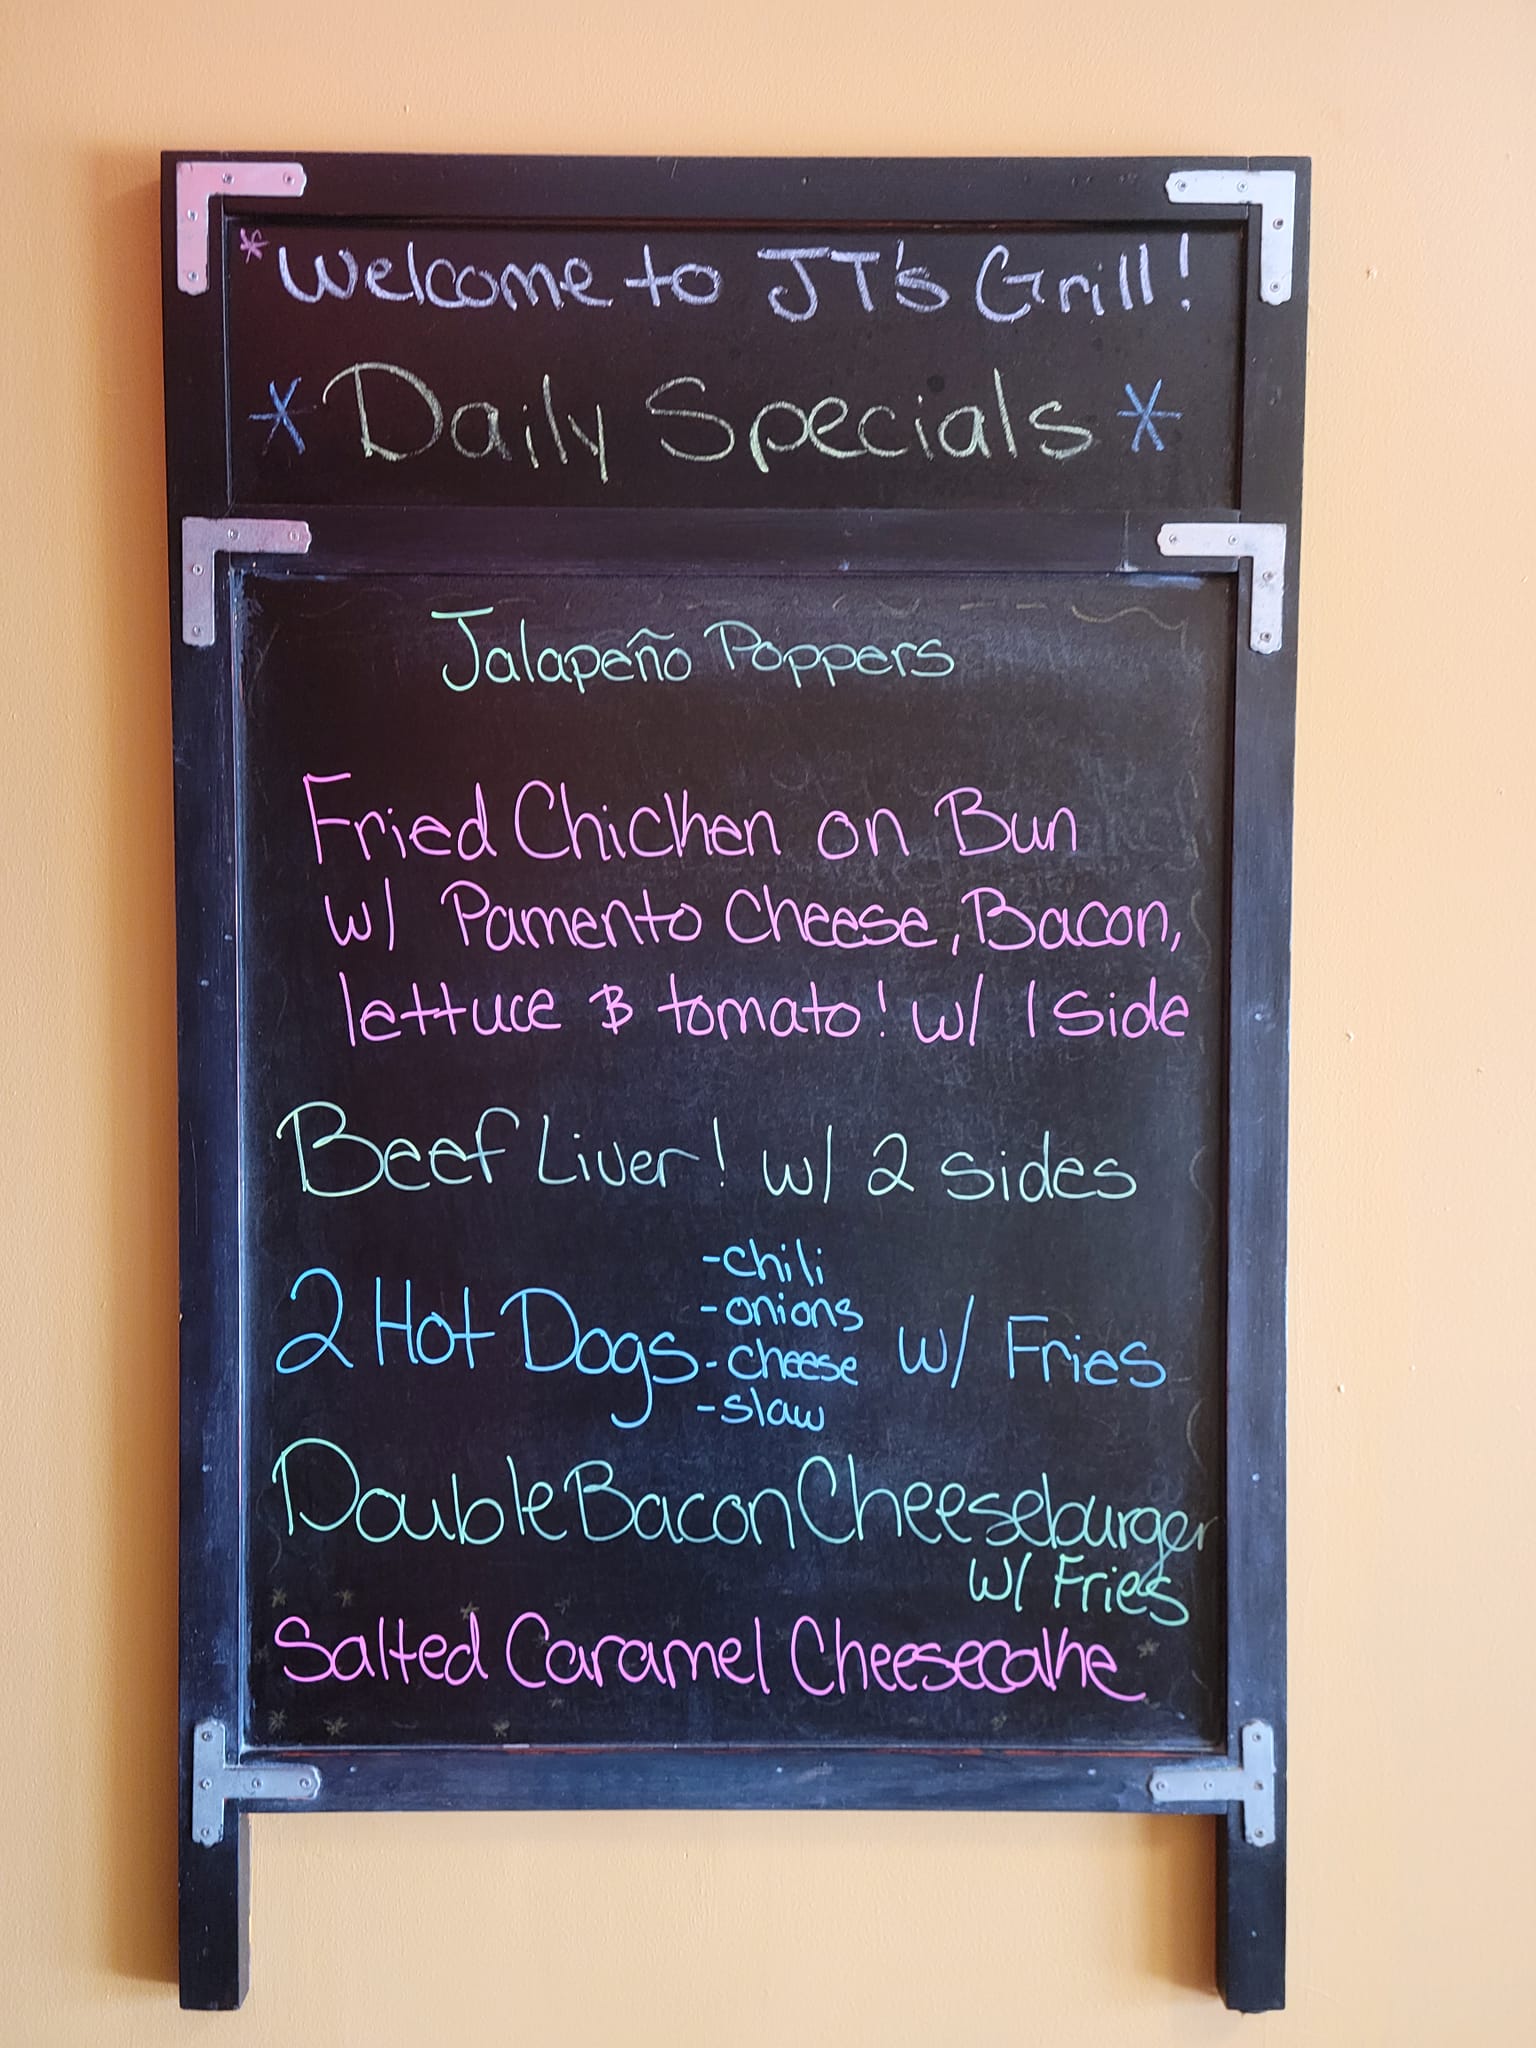 *Welcome to JT's Grill!
* Daily Specials *
Jalapeño Poppers
Fried Chicken on Bun
w/ Pamento Cheese, Bacon,
lettuce & tomato! w/ 1 side
Beef Liver! w/ 2 sides
2 Hot Dogs -chili -onions -cheese -slaw w/ Fries
Double Bacon Cheeseburger
w/ Fries
Salted Caramel Cheesecake